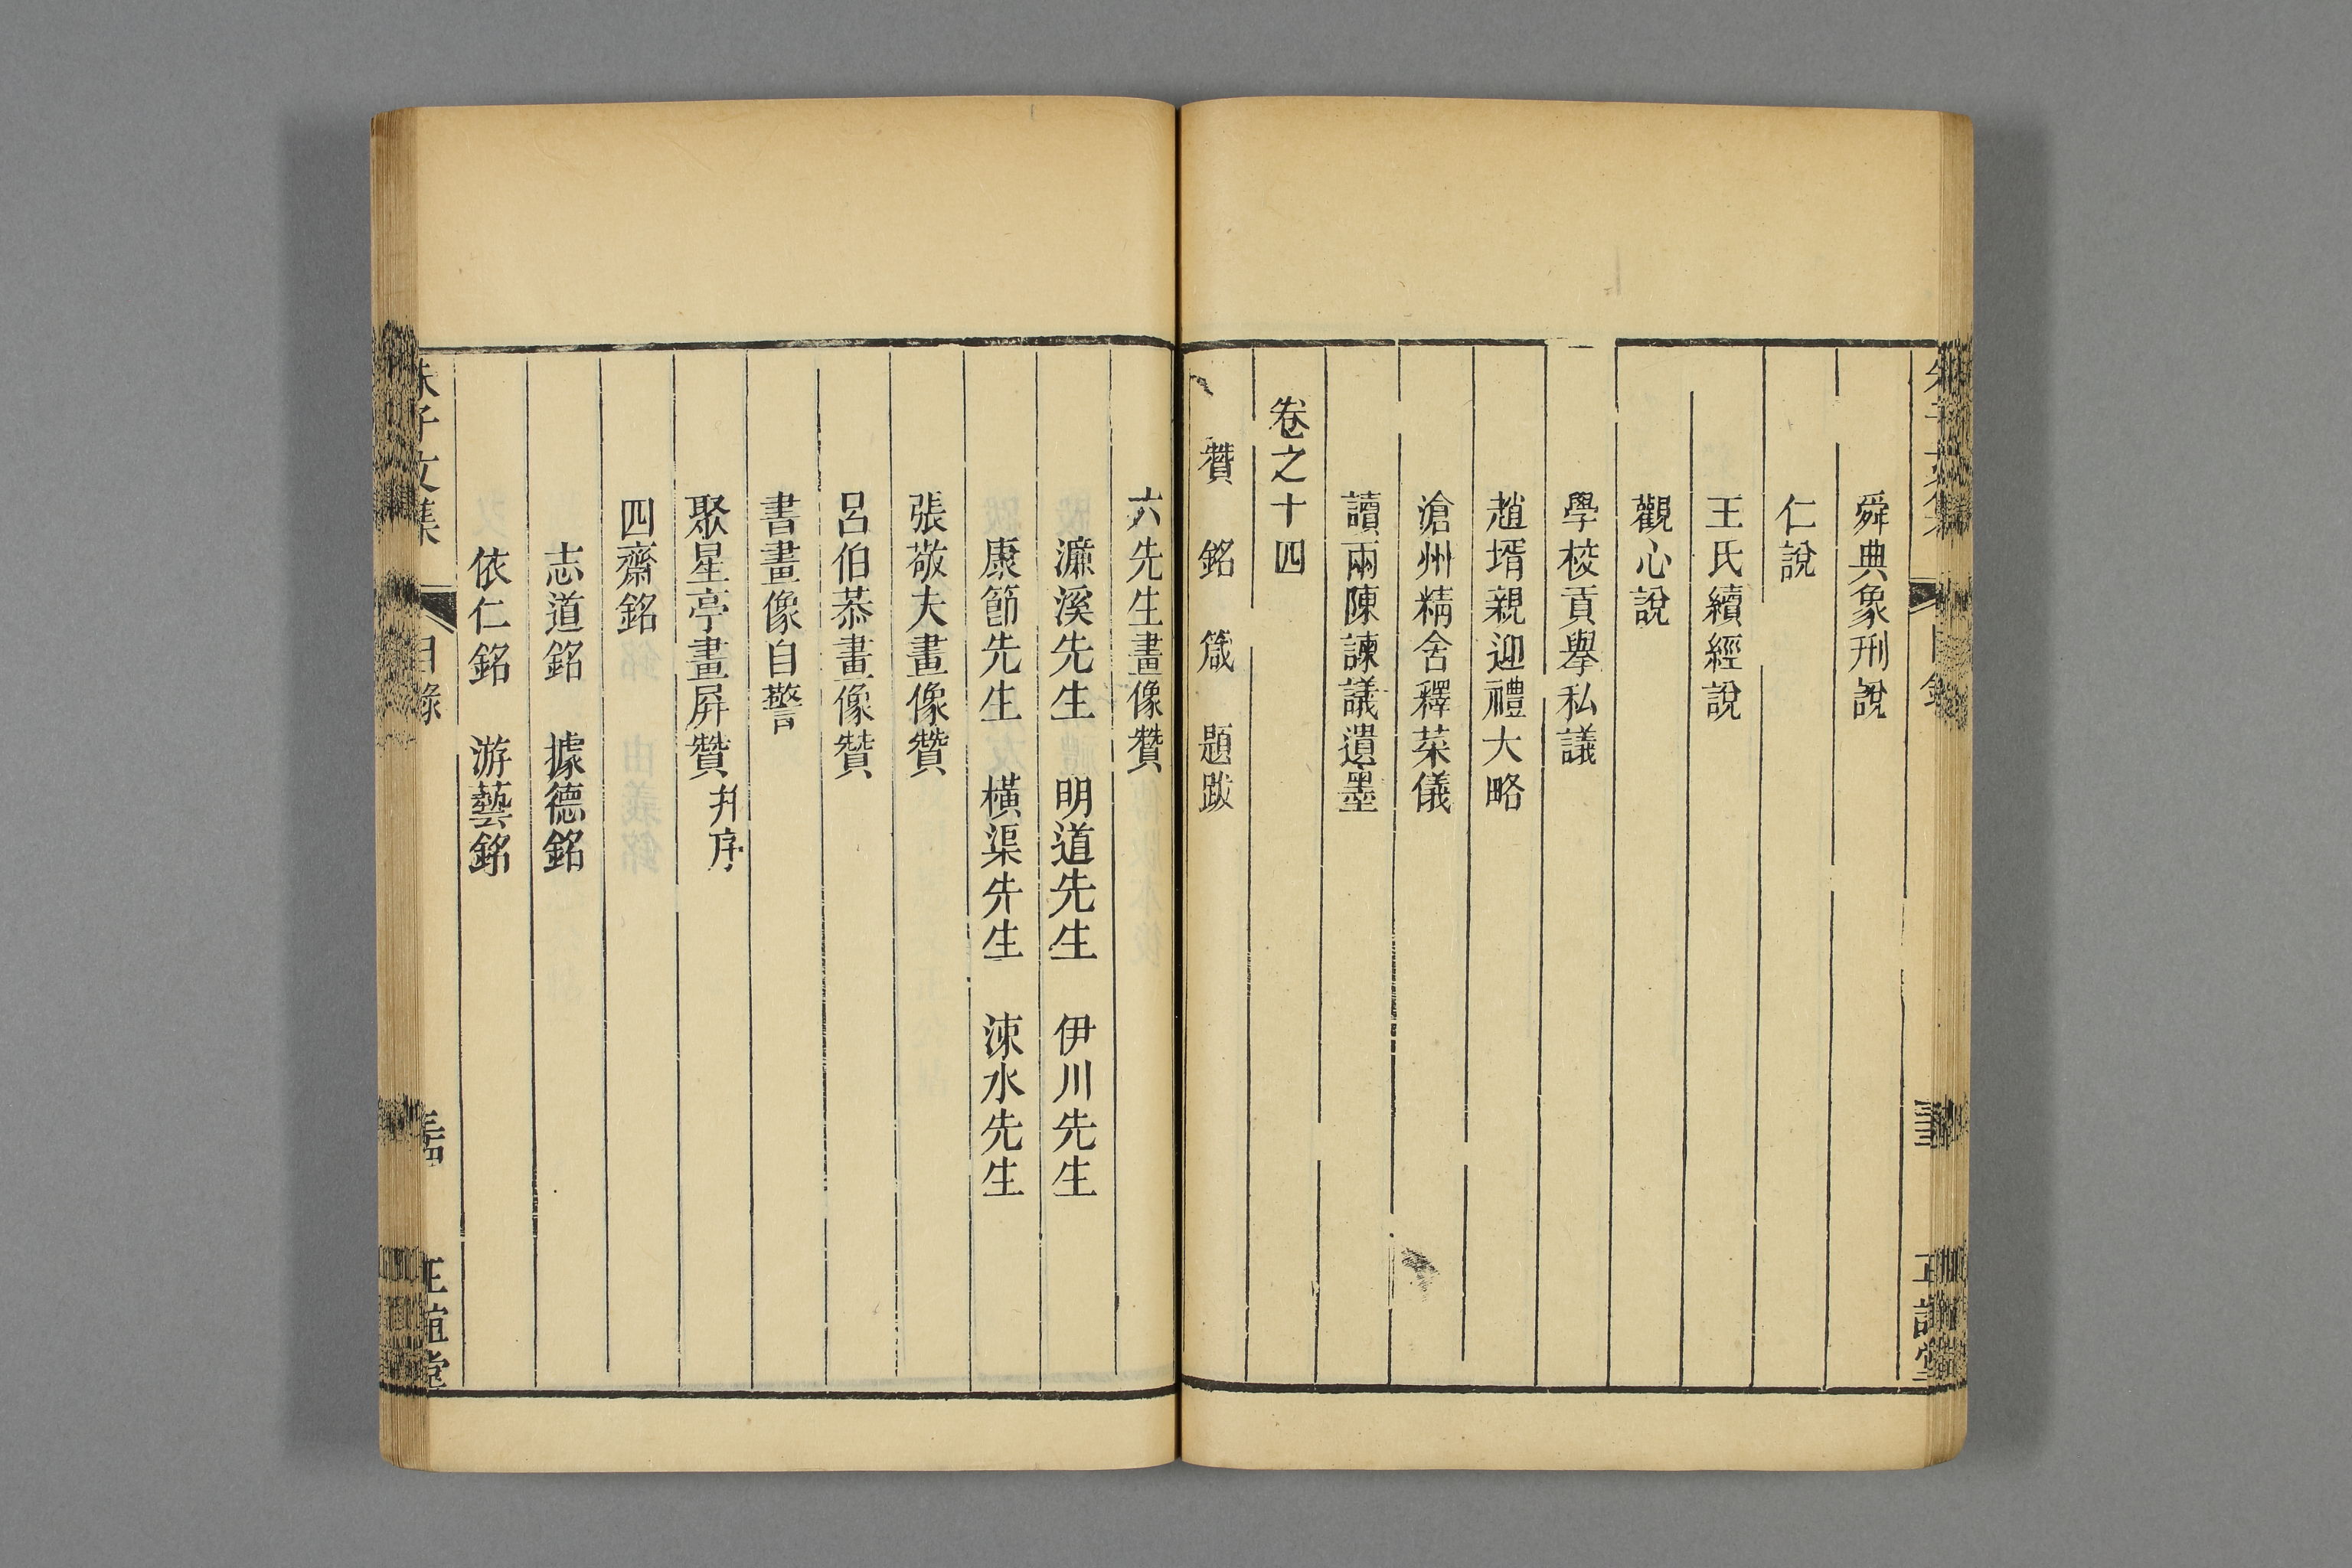 舜典象刑說
仁說
王氏續經說
觀心說
學校貢舉私議
趙壻親迎禮大略
滄州精舍釋菜儀
讀兩陳諫議遺墨
卷之十四
贊 銘 箴 題跋
六先生畫像贊
濂溪先生 明道先生 伊川先生
康節先生 橫渠先生 涑水先生
張敬夫畫像贊
呂伯恭畫像贊
書畫像自警
聚星亭畫屏贊 并序
四齋銘
志道銘 據德銘
依仁銘 游藝銘
朱子文集 目錄 正誼堂